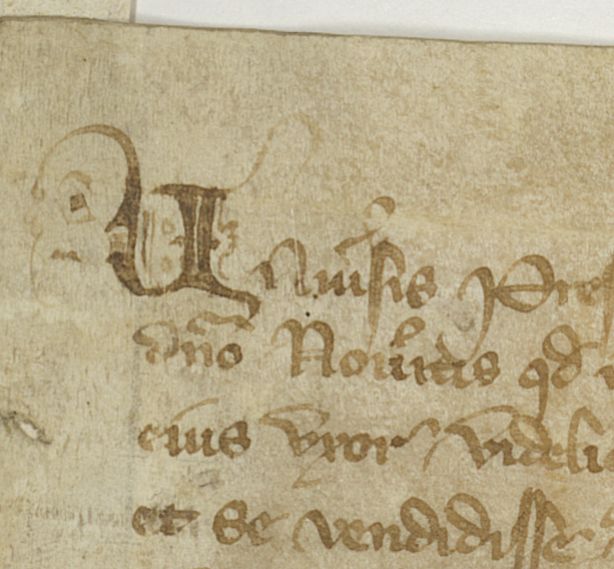 Univsis p
dno Noveritis qd
eius uxor videli
et se vendidisse